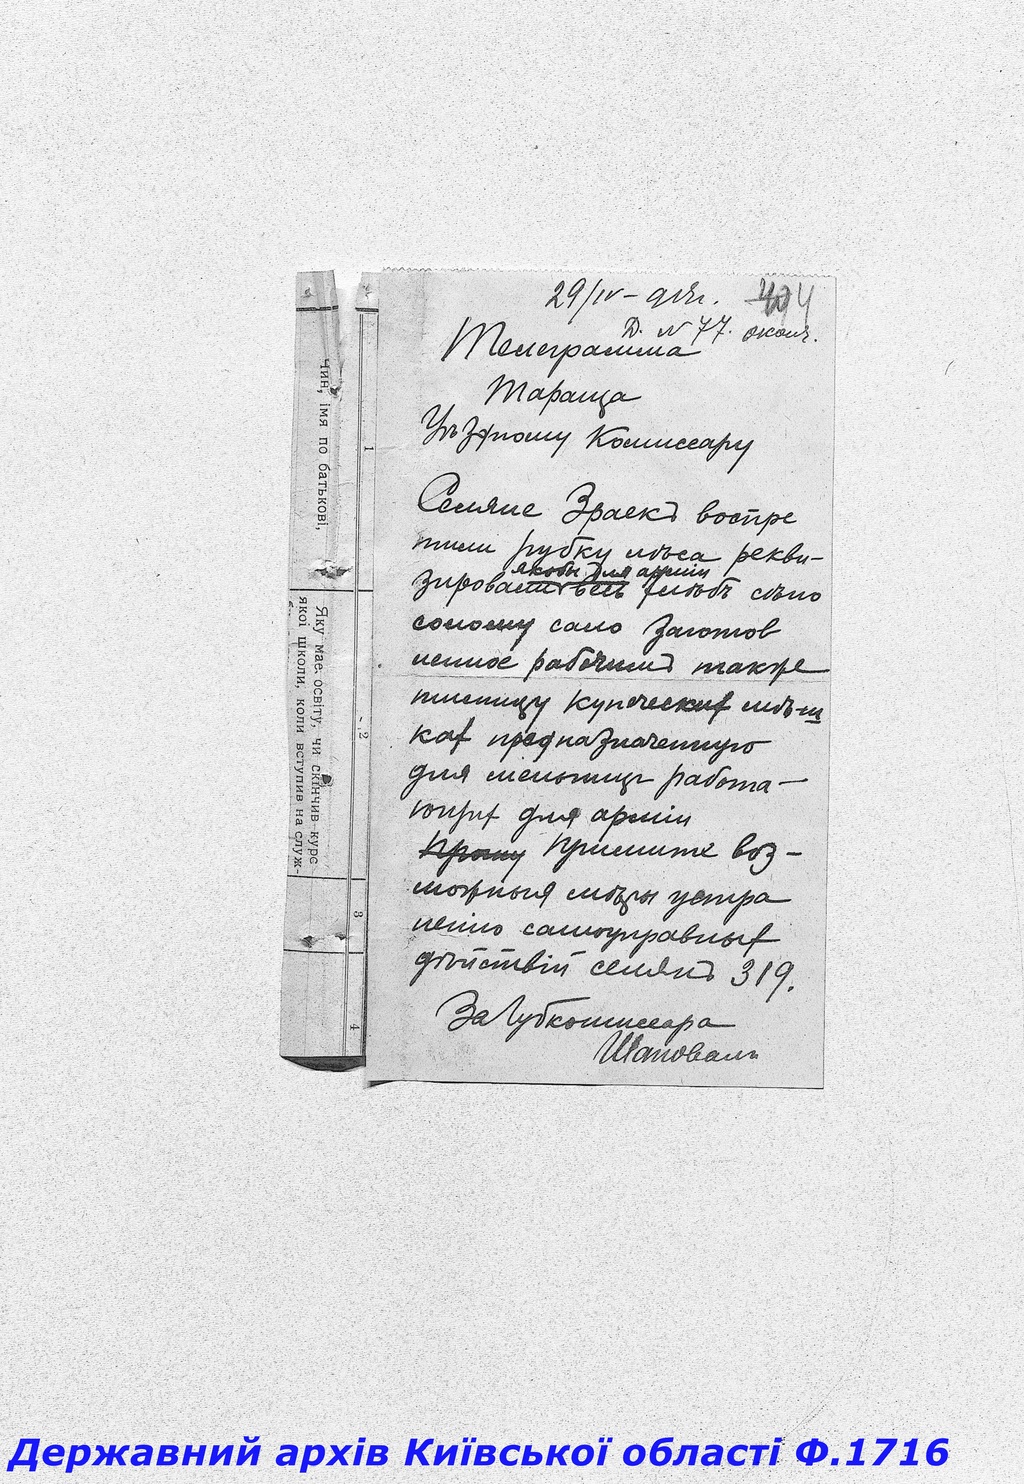 29/IV – 404
Д. № 77.
Телеграмма
Тараща
Уѣздному Комиссару
Селяне Зраекъ воспре
тили рубку лѣса рекви-
якобы для арміи
зировали весь хлѣбъ сѣно
солому сало заготов
ленное рабочимъ также
пшеницу купеческих мѣш
ках предназначенную
для мельницъ работа-
ющих для арміи
Прошу Примите воз-
можныя мѣры устра
ненію самоуправных
дѣйствій селянъ 319.
За Губкомиссара
Шаповалъ
Чин, імя по батькові,
Яку має освіту, чи скінчив курс
якої школи, коли вступив на служ-
1
2
3
4
Державний архів Київської області Ф.1716